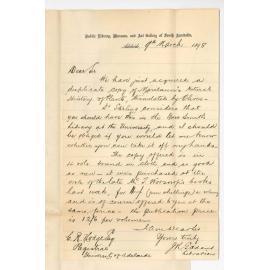 Public Library, Museum, and Art Gallery of South Australia,
Adelaide, 9th March 1895
Dear Sir
We have just acquired a
duplicate copy of Kerner's Natural
History of Plants, translated by Oliver
Dr Stirling considers that
you should have this in the
Library at the University, and I should
be obliged if you would let me know
whether you will take it off my hands.
The copy offered is in
vols bound in cloth and is as good
as new - it was purchased at the
sale of the late Mr
last week, for (four shillings) a vol
and is of course offered to you at the
same price - the publication price
is 12/6 per volume.
I am dear Sir
Yours truly
C. R. Hodge Esq
Registrar
University of Adelaide
Librarian